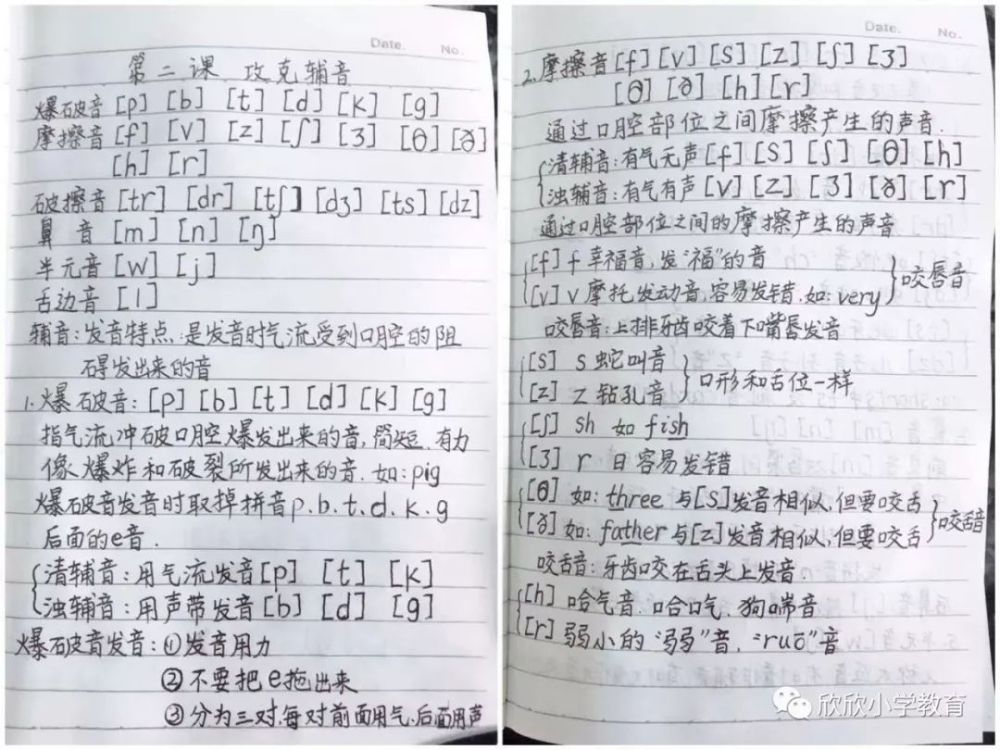 Date. No.
第二课 攻克辅音
爆破音[p] [b] [t] [d] [k] [g]
摩擦音[f] [v] [z] [ʃ] [ʒ] [θ] [ð]
[h] [r]
破擦音[tr] [dr] [tʃ] [dʒ] [ts] [dz]
鼻 音[m] [n] [ŋ]
半元音[w] [j]
舌边音[l]
辅音:发音特点:是发音时气流受到口腔的阻
碍发出来的音
1.爆破音:[p] [b] [t] [d] [k] [g]
指气流冲破口腔爆发出来的音,简短.有力
像爆炸和破裂所发出来的音.如:pig
爆破音发音时取掉拼音p.b.t.d.k.g
后面的e音.
清辅音:用气流发音[p] [t] [k]
浊辅音:用声带发音[b] [d] [g]
爆破音发音:①发音用力
②不要把e拖出来
③分为三对每对前面用气.后面用声
Date. No.
2.摩擦音[f] [v] [s] [z] [ʃ] [ʒ]
[θ] [ð] [h] [r]
通过口腔部位之间摩擦产生的声音.
清辅音:有气无声[f] [s] [ʃ] [θ] [h]
浊辅音:有气有声[v] [z] [ʒ] [ð] [r]
通过口腔部位之间的摩擦产生的声音
[f] f 幸福音,发“福”的音
[v] v 摩托,发动音,容易发错.如:very
咬唇音
咬唇音:上排牙齿咬着下嘴唇发音
[s] s 蛇叫音
[z] z 钻孔音
口形和舌位一样
[ʃ] sh 如 fish
[ʒ] r 日容易发错
[θ] 如:three 与[s]发音相似,但要咬舌
[ð] 如:father 与[z]发音相似,但要咬舌
咬舌音
咬舌音:牙齿咬在舌头上发音.
[h] 哈气音.哈口气.狗喘音
[r] 弱小的“弱”音.“ruò”音
欣欣小学教育